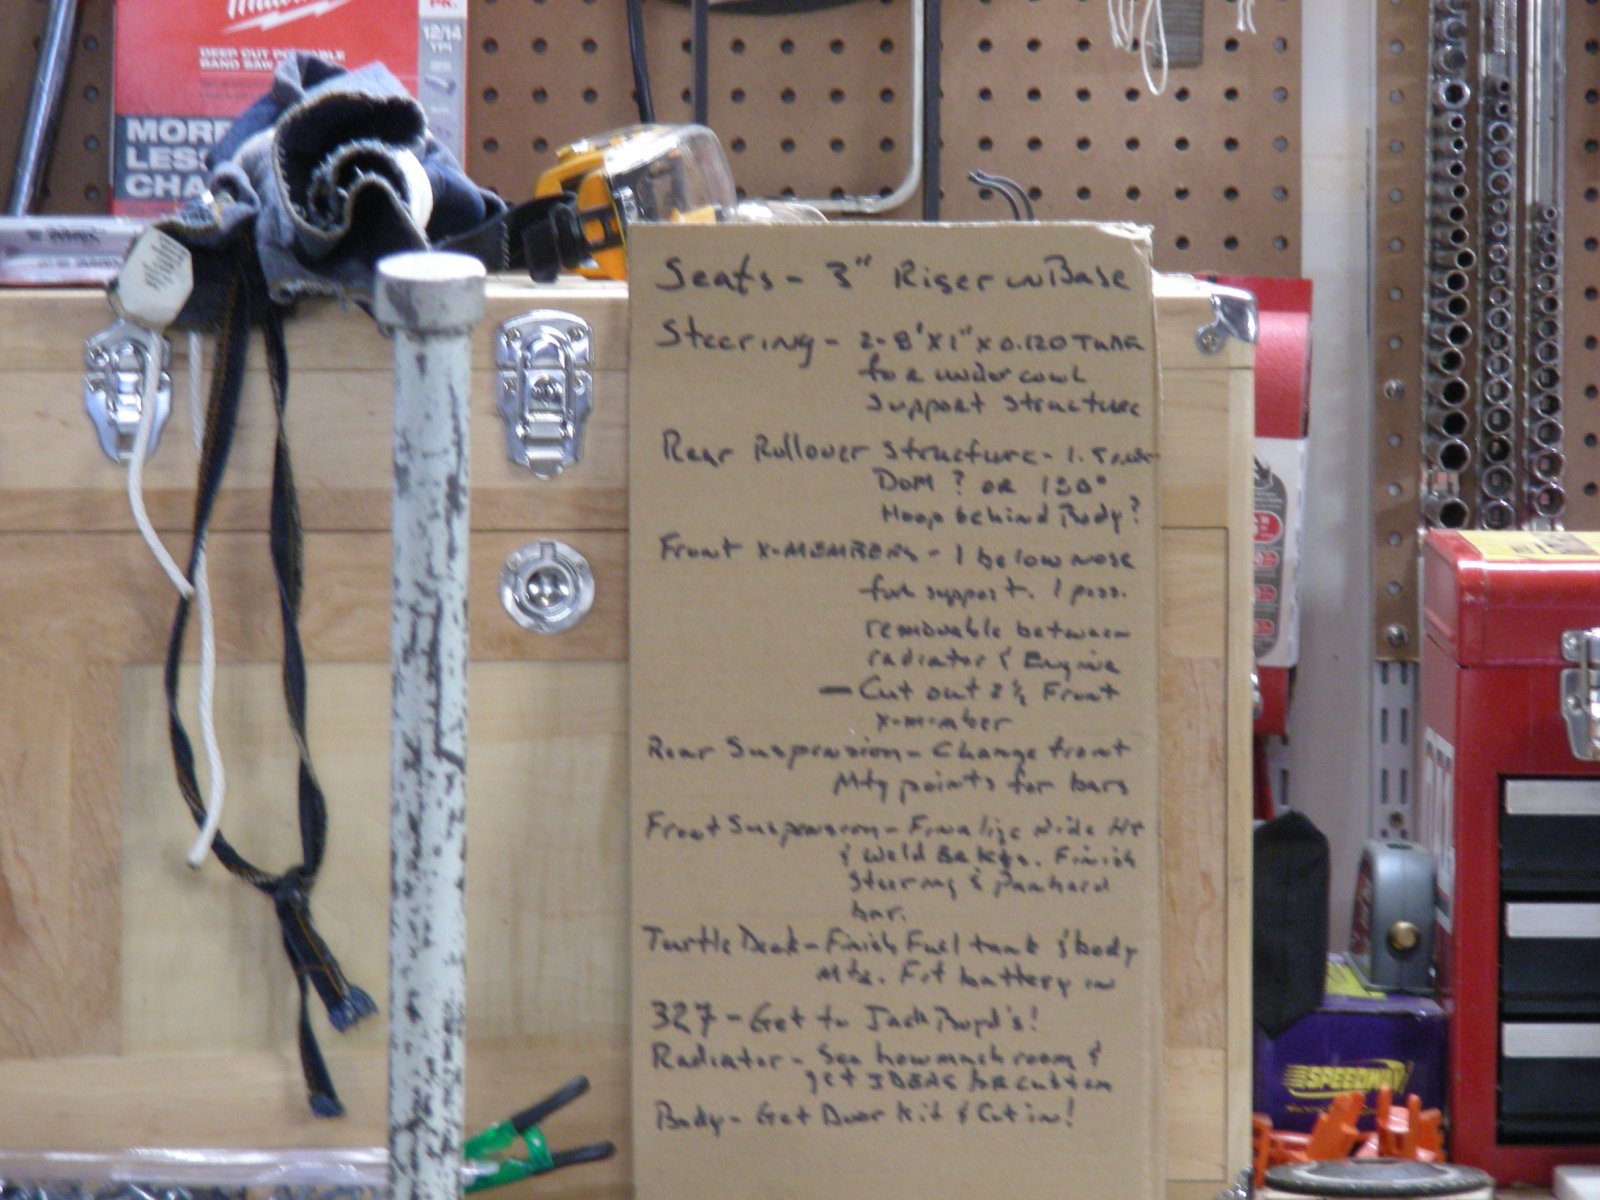 Milwaukee
DEEP CUT PORTABLE
BAND SAW
12/14
TPI
MORE
LESS
CHA
Seats - 3" Riser w Base
Steering - 2-8'x1"x0.120 TUBE
for under cowl
support structure
Rear Rollover structure - 1.5
DOM? OR 180°
Hoop behind Body?
Front X-MEMBERS - 1 below nose
for support. 1 poss.
removable between
radiator & Engine
- Cut out 2½ Front
x-member
Rear Suspension - Change front
Mtg points for bars
Front Suspension - Finalize ride Ht
& weld Brkts. Finish
Steering & Panhard
bar.
Turtle Deck - Finish Fuel tank & body
Mts. Fit battery in
327 - Get to Jack Boyd's!
Radiator - See how much room &
get IDEAS for custom
Body - Get Door Kit & Cut in!
SPEEDWAY